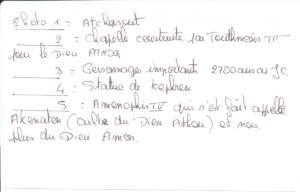 Photo 1 = Atchargout
2 = Chapelle construite par Touthmosis III
pour le Dieu
3 = Personnages importants 2700 ans av JC.
4 = Statue de Kephren
5 = Amenophis IV qui s'est fait appeller
Akenaten (culte du Dieu Athon) et non
plus du Dieu Amon.